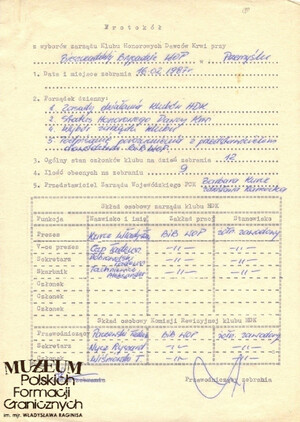 Protokół
z wyborów zarządu Klubu Honorowych Dawców Krwi przy
Bieszczadzkiej Brygadzie WOP w Przemyślu
1. Data i miejsce zebrania 16.02.1987r.
2. Porządek dzienny:
1. Zasady działania Klubów HDK
2. Status Honorowego Dawcy Krwi
3. Wybór władz klubu
4.
3. Ogólny stan członków klubu na dzień zebrania 12
4. Ilość obecnych na zebraniu 9
5. Przedstawiciel Zarządu Wojewódzkiego PCK Barbara Kurc
Skład osobowy zarządu klubu HDK
Funkcja Nazwisko i imię Zakład pracy Stanowisko
Prezes Kurcz Władysław BiB WOP żołn. zawodowy
V-ce prezes -||- -||-
Sekretarz -||- -||-
Skarbnik -||- -||-
Członek
Członek
Członek
Skład osobowy Komisji Rewizyjnej klubu HDK
Przewodniczący BiB WOP żołn. zawodowy
Sekretarz Nycz Ryszard -||- -||-
Członek Wiśniewski T -||- -||-
Przewodniczący zebrania
MUZEUM
Polskich
Formacji
Granicznych
im. mjr. WŁADYSŁAWA RAGINISA